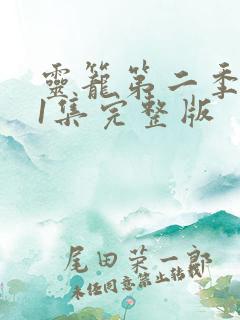 靈籠第二季
1集完整版
尾田荣一郎
未经同意禁止转载